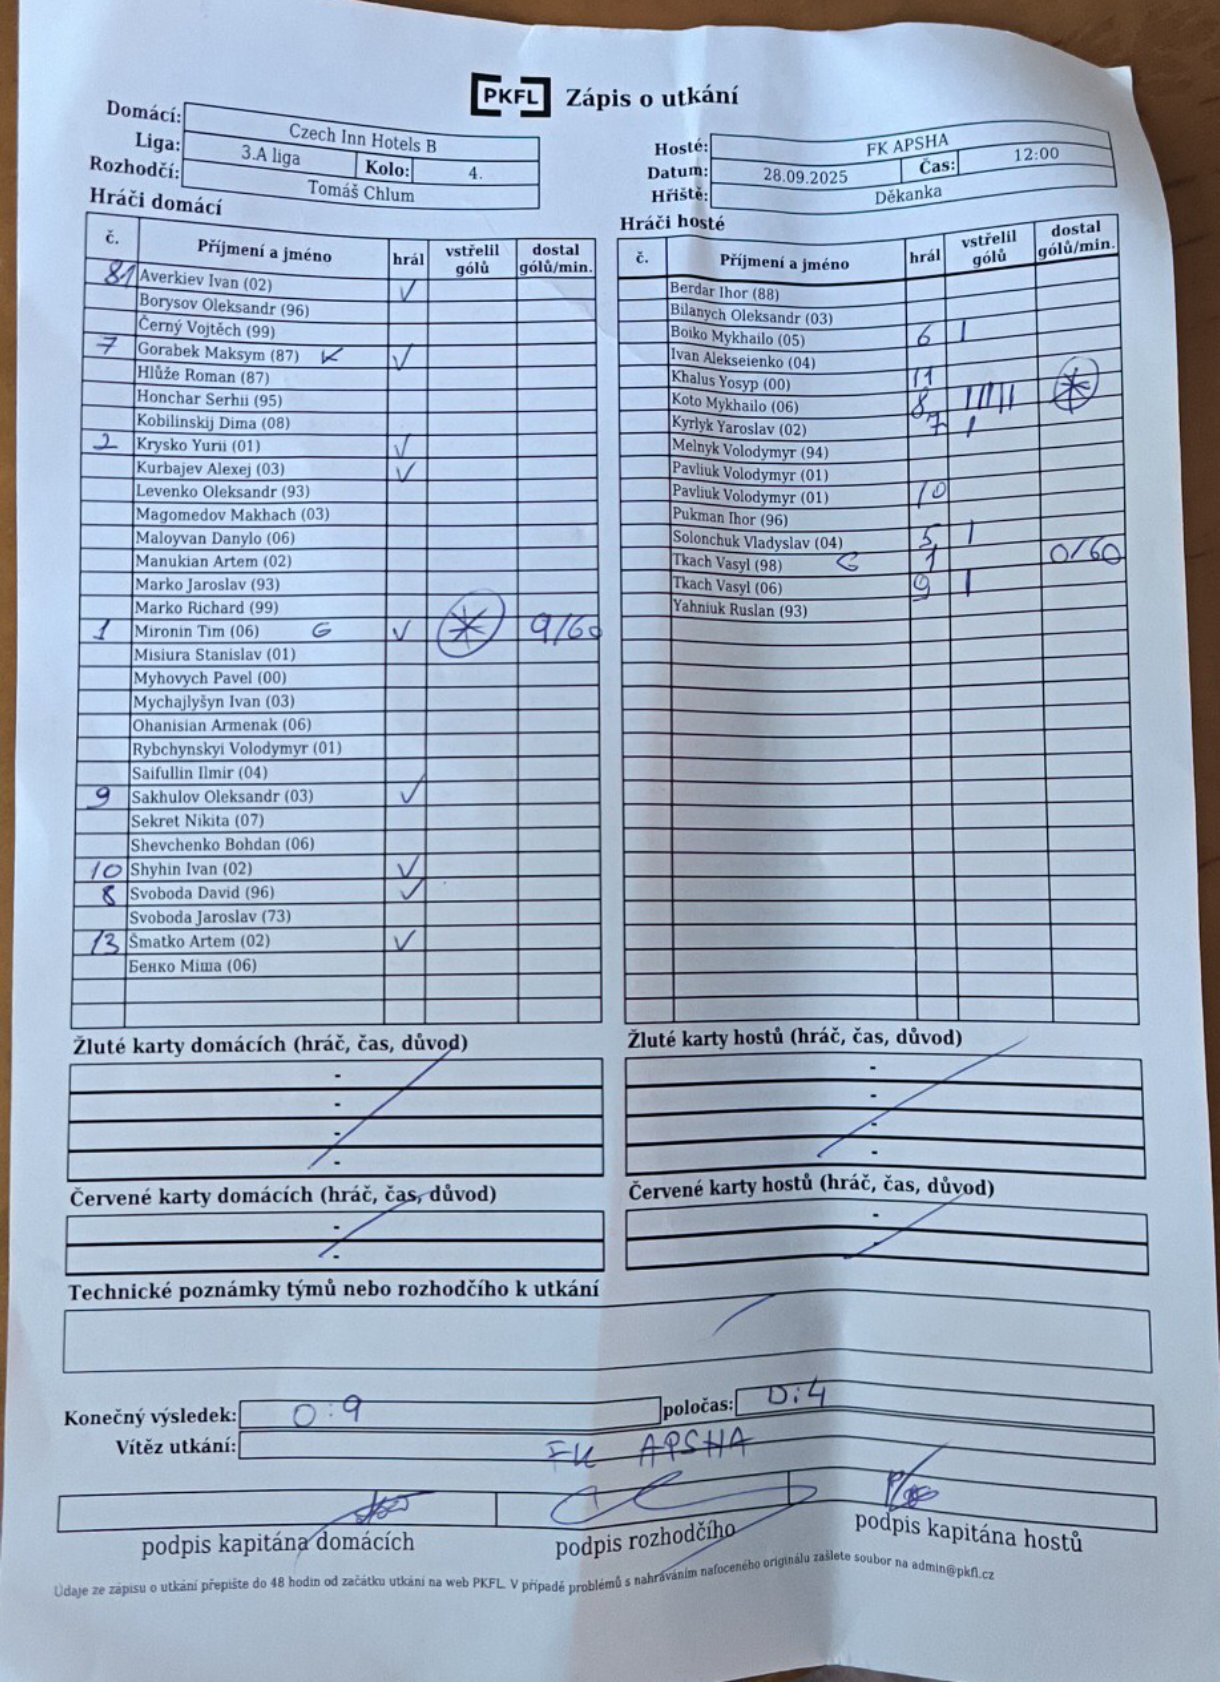 PKFL Zápis o utkání
Domácí: Czech Inn Hotels B
Liga: 3.A liga Kolo: 4.
Rozhodčí: Tomáš Chlum
Hosté: FK APSHA
Datum: 28.09.2025 Čas: 12:00
Hřiště: Děkanka
Hráči domácí
č. Příjmení a jméno hrál vstřelil gólů dostal gólů/min.
81 Averkiev Ivan (02) ✓
Borysov Oleksandr (96)
Černý Vojtěch (99)
7 Gorabek Maksym (87) K ✓
Hlůže Roman (87)
Honchar Serhii (95)
Kobilinskij Dima (08)
2 Krysko Yurii (01) ✓
Kurbajev Alexej (03) ✓
Levenko Oleksandr (93)
Magomedov Makhach (03)
Maloyvan Danylo (06)
Manukian Artem (02)
Marko Jaroslav (93)
Marko Richard (99)
1 Mironin Tim (06) G ✓ * 9/60
Misiura Stanislav (01)
Myhovych Pavel (00)
Mychajlyšyn Ivan (03)
Ohanisian Armenak (06)
Rybchynskyi Volodymyr (01)
Saifullin Ilmir (04)
9 Sakhulov Oleksandr (03) ✓
Sekret Nikita (07)
Shevchenko Bohdan (06)
10 Shyhin Ivan (02) ✓
8 Svoboda David (96) ✓
Svoboda Jaroslav (73)
13 Šmatko Artem (02) ✓
Бенко Міша (06)
Hráči hosté
č. Příjmení a jméno hrál vstřelil gólů dostal gólů/min.
Berdar Ihor (88)
Bilanych Oleksandr (03)
Boiko Mykhailo (05) 6 I
Ivan Alekseienko (04)
Khalus Yosyp (00) 11
Koto Mykhailo (06) 8 IIIII *
Kyrlyk Yaroslav (02) 7 I
Melnyk Volodymyr (94)
Pavliuk Volodymyr (01)
Pavliuk Volodymyr (01) 10
Pukman Ihor (96)
Solonchuk Vladyslav (04) 5 I
Tkach Vasyl (98) G 1 0/60
Tkach Vasyl (06) 9 I
Yahniuk Ruslan (93)
Žluté karty domácích (hráč, čas, důvod)
-
-
-
-
Žluté karty hostů (hráč, čas, důvod)
-
-
-
-
Červené karty domácích (hráč, čas, důvod)
-
-
Červené karty hostů (hráč, čas, důvod)
-
-
Technické poznámky týmů nebo rozhodčího k utkání
Konečný výsledek: 0:9 poločas: 0:4
Vítěz utkání: FK APSHA
podpis kapitána domácích podpis rozhodčího podpis kapitána hostů
Údaje ze zápisu o utkání přepište do 48 hodin od začátku utkání na web PKFL. V případě problémů s nahráváním nafoceného originálu zašlete soubor na admin@pkfl.cz